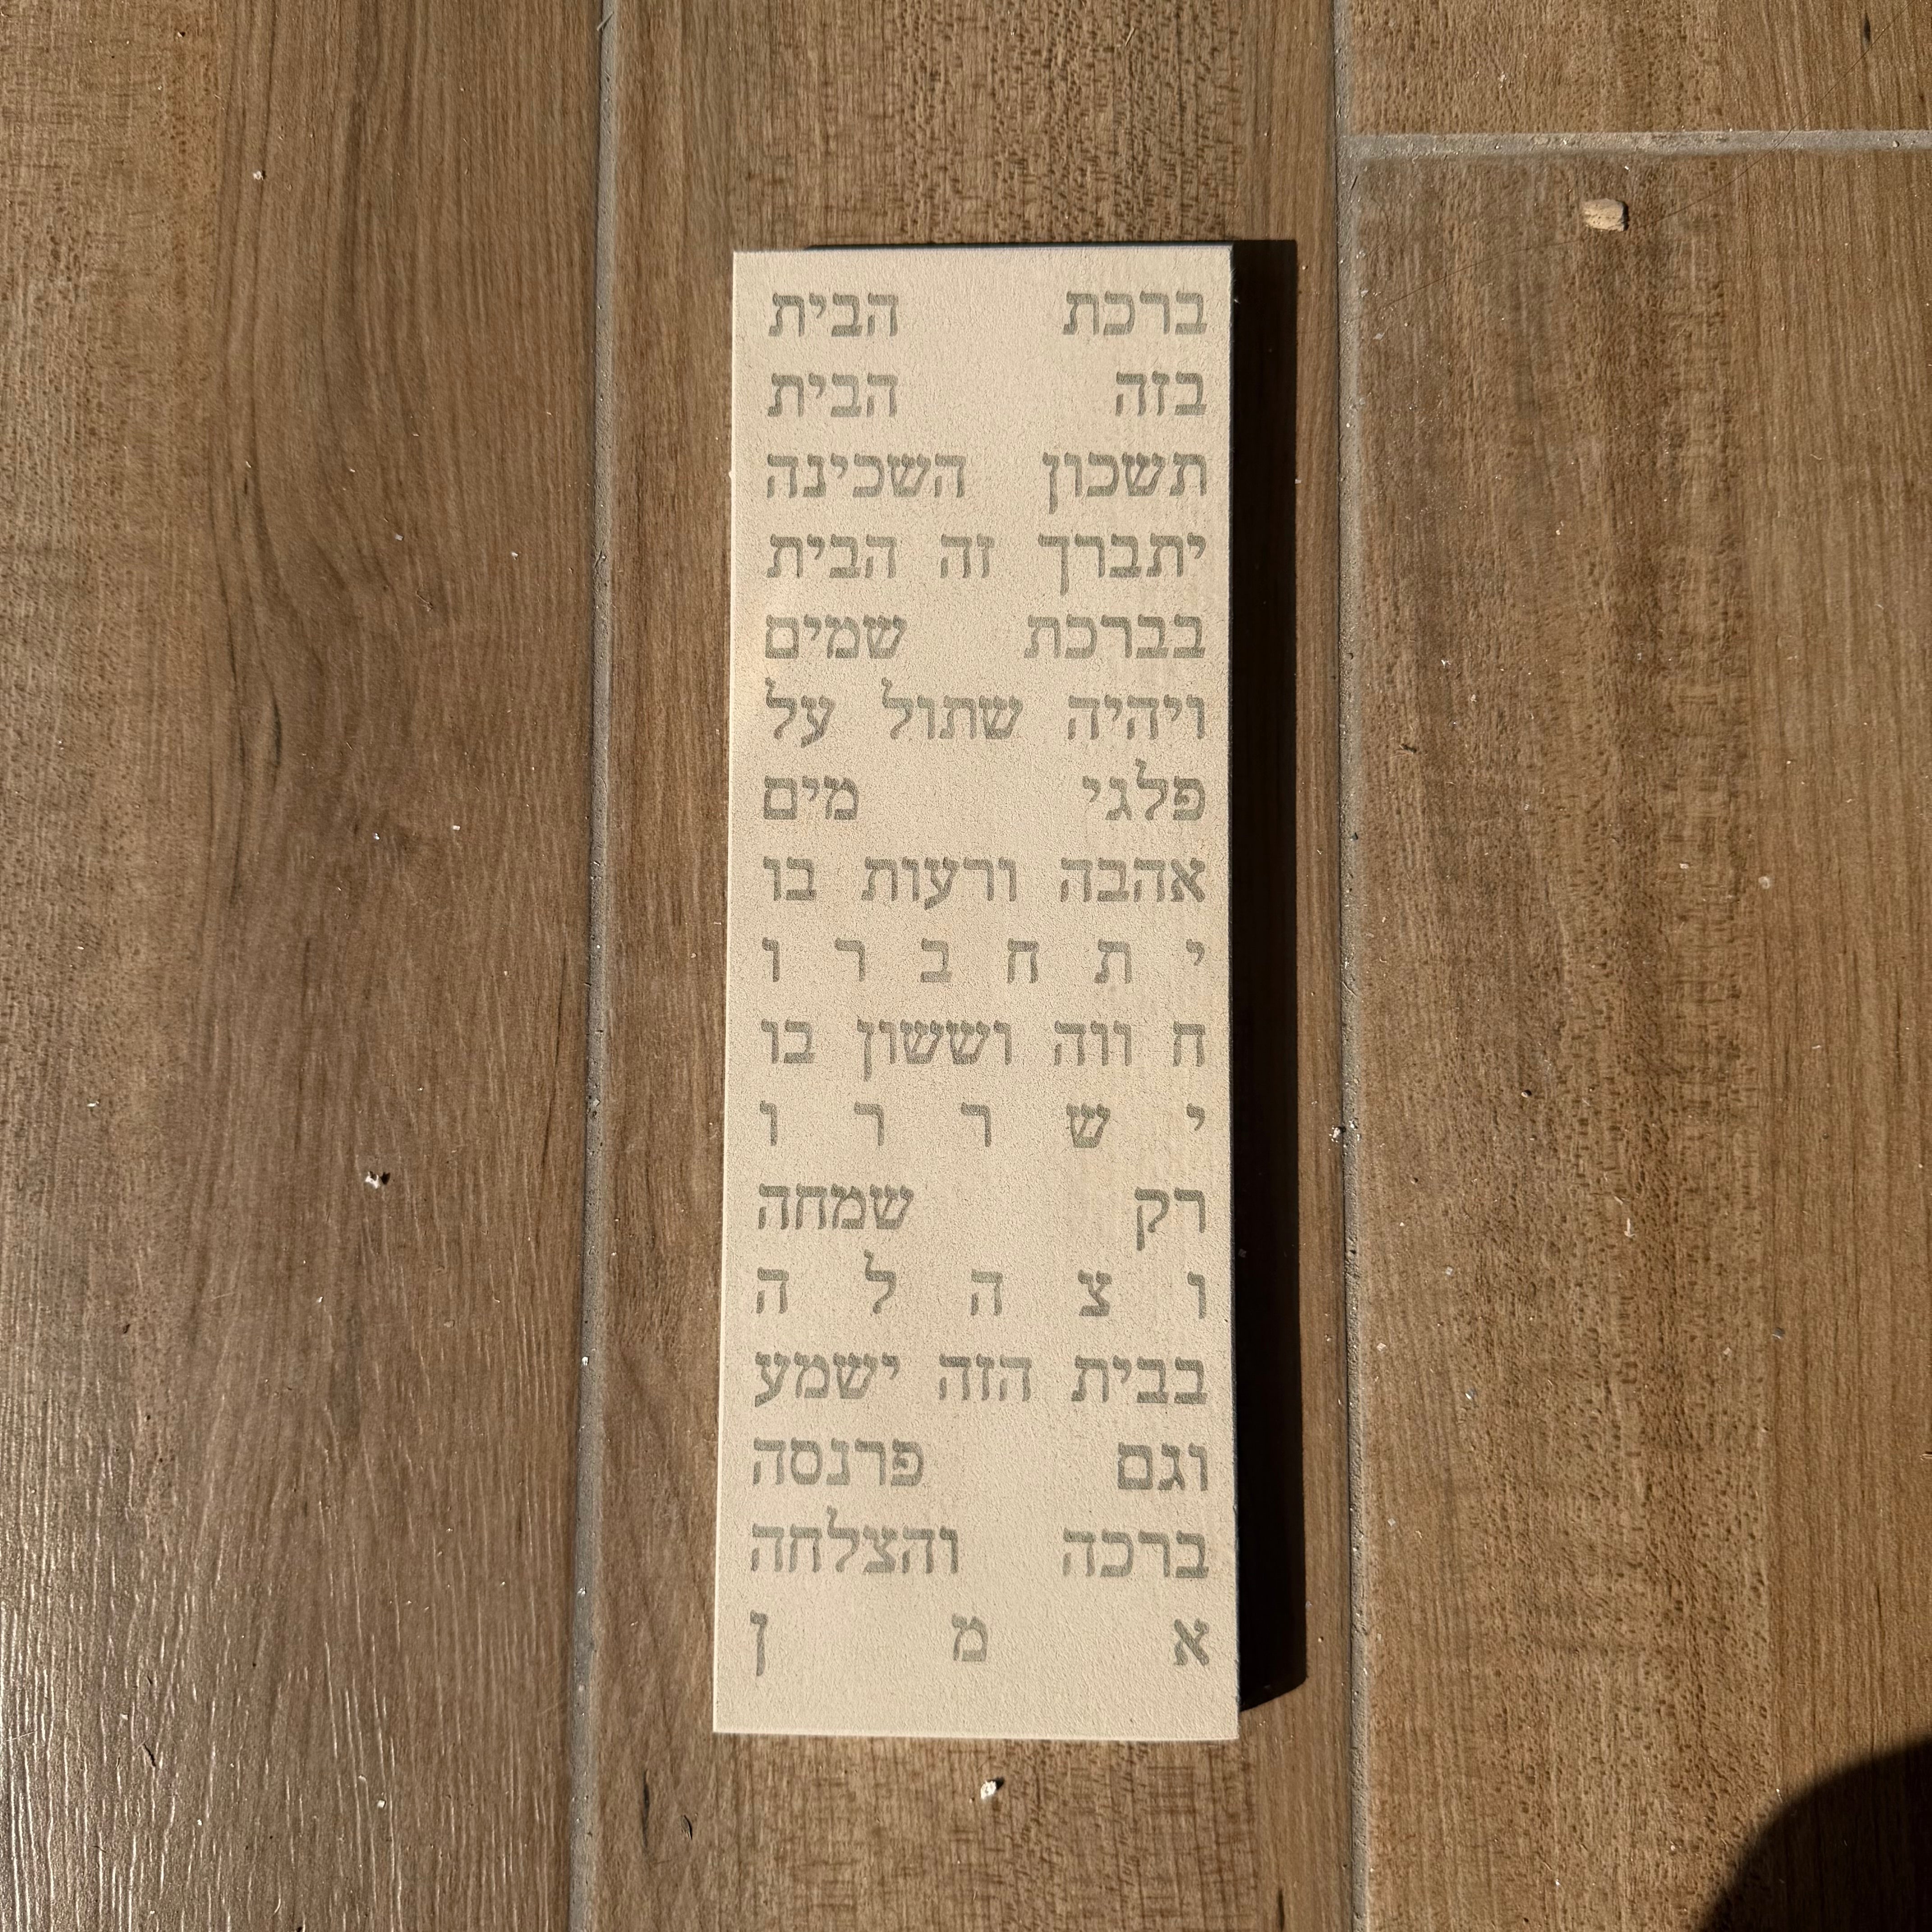 ברכת הבית
בזה הבית
תשכון השכינה
יתברך זה הבית
בברכת שמים
ויהיה שתול על
פלגי מים
אהבה ורעות בו
י ת ח ב ר ו
ח ווה וששון בו
י ש ר ר ו
רק שמחה
ו צ ה ל ה
בבית הזה ישמע
וגם פרנסה
ברכה והצלחה
א מ ן